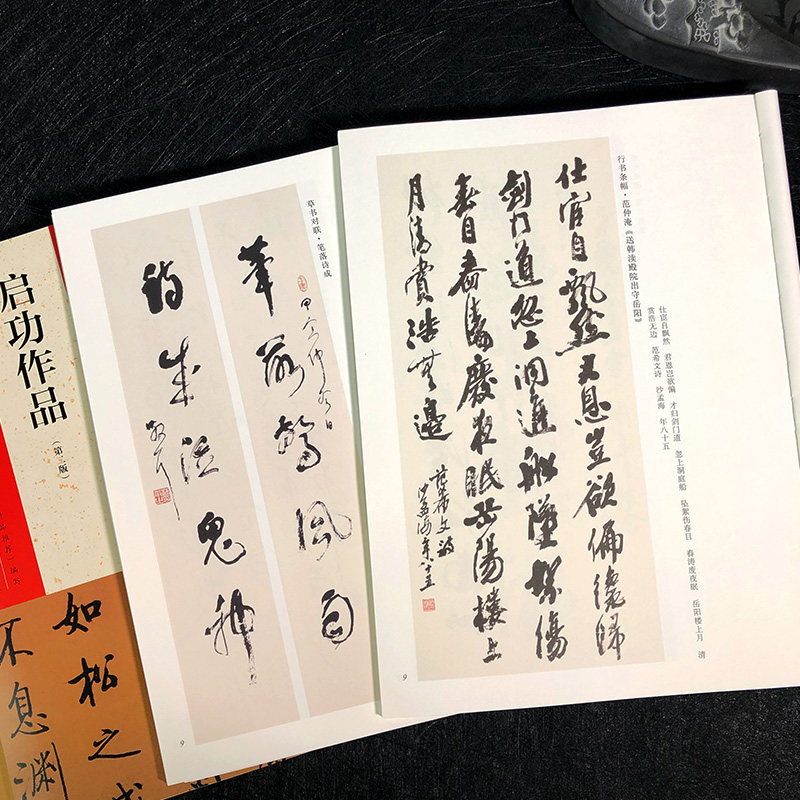 行书条幅·范仲淹《送韩渎殿院出守岳阳》
仕宦自飘然 君恩岂欲偏 才归剑门道 忽上洞庭船 坠絮伤春目 春涛废夜眠 岳阳楼上月 清
赏浩无边 范希文诗 沙孟海 年八十五
仕宦自飄然君恩豈欲偏纔歸
劍門道忽上洞庭船墜絮傷
春目春濤廢夜眠岳陽樓上
月清賞浩無邊
范希文詩
沙孟海年八十五
9
草书对联·笔落诗成
筆落驚風雨
詩成泣鬼神
9
启功作品
(第二版)
编写
如松之
不息渊